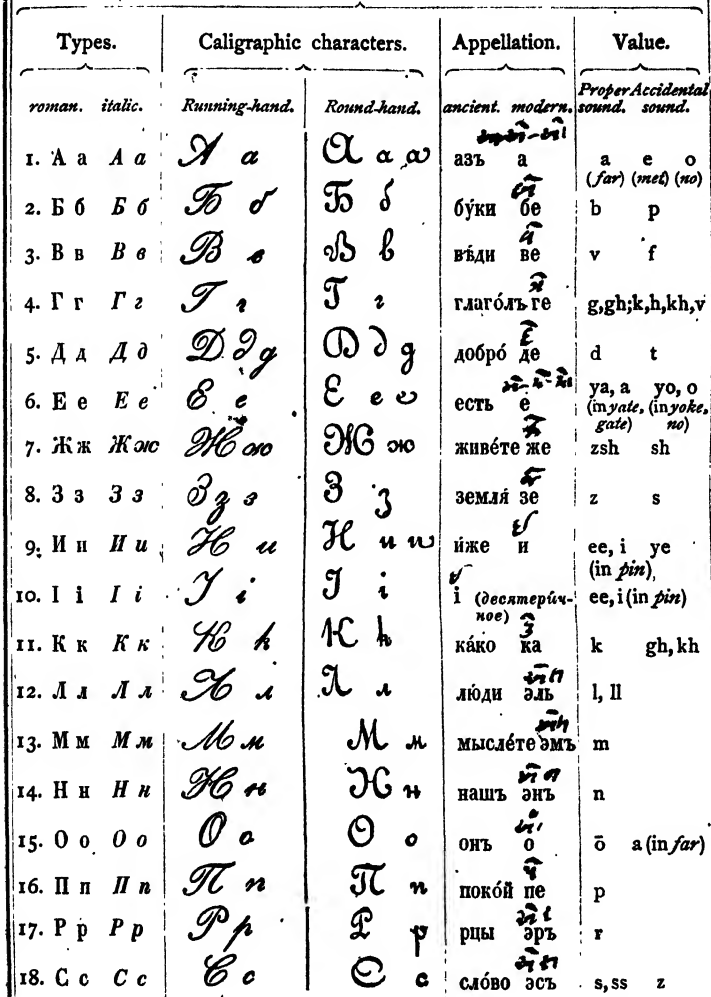 Types. Caligraphic characters. Appellation. Value.
roman. italic. Running-hand. Round-hand. ancient. modern. Proper sound. Accidental sound.
1. А а А а А а А а а азъ а a e o
(far) (met) (no)
2. Б б Б б Б б Б б бу́ки бе b p
3. В в В в В в В в вѣ́ди ве v f
4. Г г Г г Г г Г г глаго́лъ ге g,gh;k,h,kh,v
5. Д д Д д Д д д Д д д добро́ де d t
6. Е е Е е Е е Е е е есть е ya, a yo, o
(in yate, (in yoke,
gate) no)
7. Ж ж Ж ж Ж ж Ж ж живе́те же zsh sh
8. З з З з З з з З з земля́ зе z s
9. И и И и И и И и и и́же и ee, i ye
(in pin)
10. І і І і І і І і і (десятери́ч-
ное) ee, i (in pin)
11. К к К к К к К к ка́ко ка k gh, kh
12. Л л Л л Л л Л л лю́ди эль l, ll
13. М м М м М м М м мысле́те эмъ m
14. Н н Н н Н н Н н нашъ энъ n
15. О о О о О о О о онъ о ō a (in far)
16. П п П п П п П п поко́й пе p
17. Р р Р р Р р Р р рцы эръ r
18. С с С с С с С с сло́во эсъ s, ss z